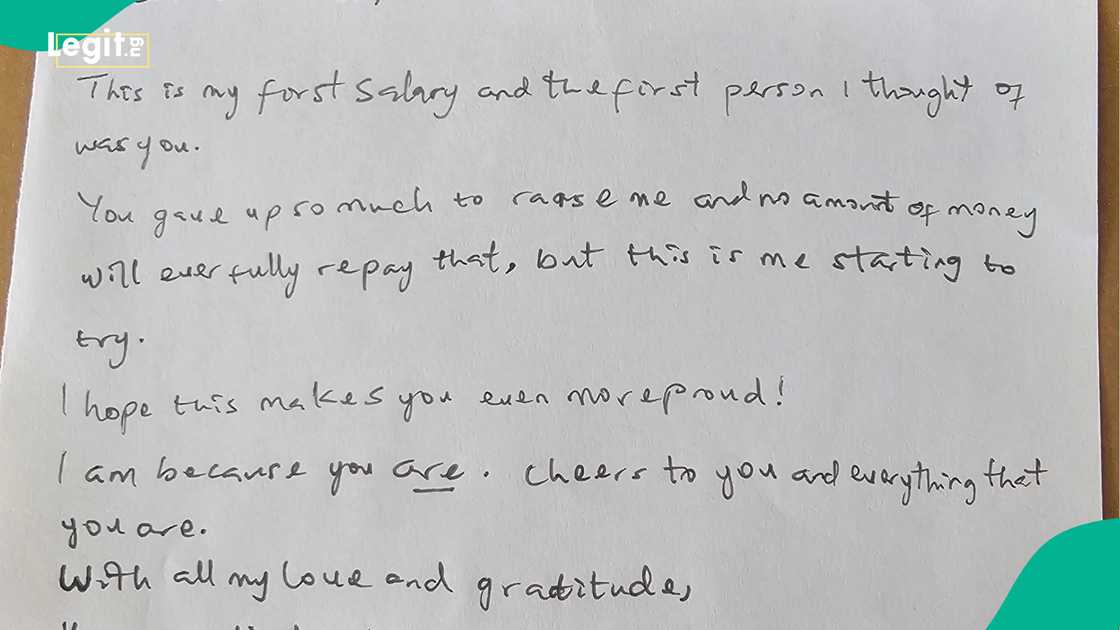 Legit.ng
This is my first salary and the first person I thought of
was you.
You gave up so much to raise me and no amount of money
will ever fully repay that, but this is me starting to
try.
I hope this makes you even more proud!
I am because you are. Cheers to you and everything that
you are.
With all my love and gratitude,